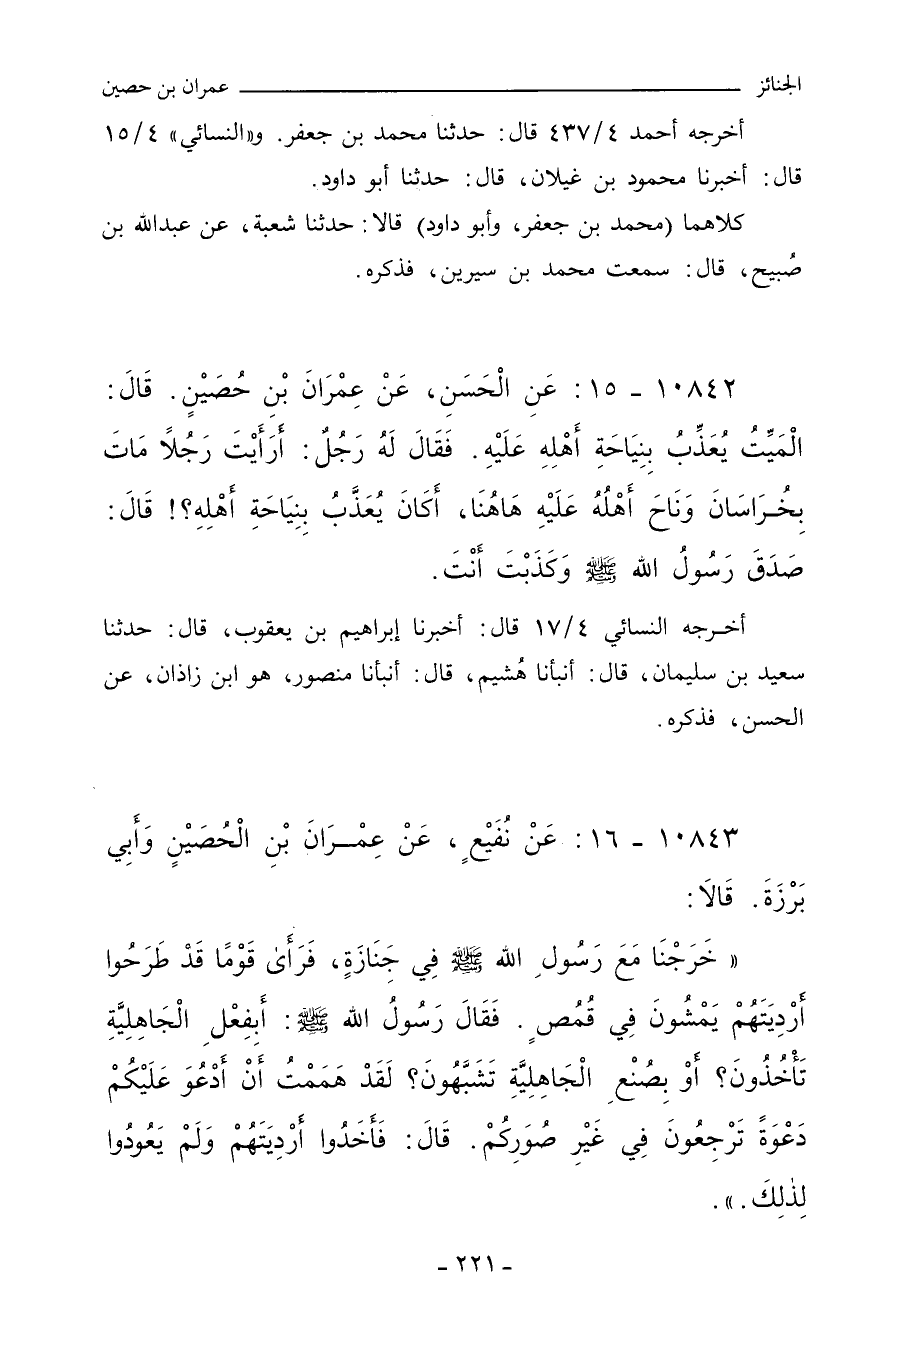 الجنائز ـــــــــ عمران بن حصين
أخرجه أحمد ٤/ ٤٣٧ قال: حدثنا محمد بن جعفر. و«النسائي» ٤/ ١٥
قال: أخبرنا محمود بن غيلان، قال: حدثنا أبو داود.
كلاهما (محمد بن جعفر، وأبو داود) قالا: حدثنا شعبة، عن عبدالله بن
صُبيح، قال: سمعت محمد بن سيرين، فذكره.
١٠٨٤٢ - ١٥: عَنِ الْحَسَنِ، عَنْ عِمْرَانَ بْنِ حُصَيْنٍ. قَالَ:
الْمَيِّتُ يُعَذَّبُ بِنِيَاحَةِ أَهْلِهِ عَلَيْهِ. فَقَالَ لَهُ رَجُلٌ: أَرَأَيْتَ رَجُلًا مَاتَ
بِخُرَاسَانَ وَنَاحَ أَهْلُهُ عَلَيْهِ هَاهُنَا، أَكَانَ يُعَذَّبُ بِنِيَاحَةِ أَهْلِهِ؟! قَالَ:
صَدَقَ رَسُولُ الله ﷺ وَكَذَبْتَ أَنْتَ.
أخرجه النسائي ٤/ ١٧ قال: أخبرنا إبراهيم بن يعقوب، قال: حدثنا
سعيد بن سليمان، قال: أنبأنا هُشيم، قال: أنبأنا منصور، هو ابن زاذان، عن
الحسن، فذكره.
١٠٨٤٣ - ١٦: عَنْ نُفَيْعٍ، عَنْ عِمْرَانَ بْنِ الْحُصَيْنِ وَأَبِي
بَرْزَةَ. قَالَا:
« خَرَجْنَا مَعَ رَسُولِ الله ﷺ فِي جَنَازَةٍ، فَرَأَىٰ قَوْمًا قَدْ طَرَحُوا
أَرْدِيَتَهُمْ يَمْشُونَ فِي قُمُصٍ. فَقَالَ رَسُولُ الله ﷺ: أَبِفِعْلِ الْجَاهِلِيَّةِ
تَأْخُذُونَ؟ أَوْ بِصُنْعِ الْجَاهِلِيَّةِ تَشَبَّهُونَ؟ لَقَدْ هَمَمْتُ أَنْ أَدْعُوَ عَلَيْكُمْ
دَعْوَةً تَرْجِعُونَ فِي غَيْرِ صُوَرِكُمْ. قَالَ: فَأَخَذُوا أَرْدِيَتَهُمْ وَلَمْ يَعُودُوا
لِذٰلِكَ.».
- ٢٢١ -